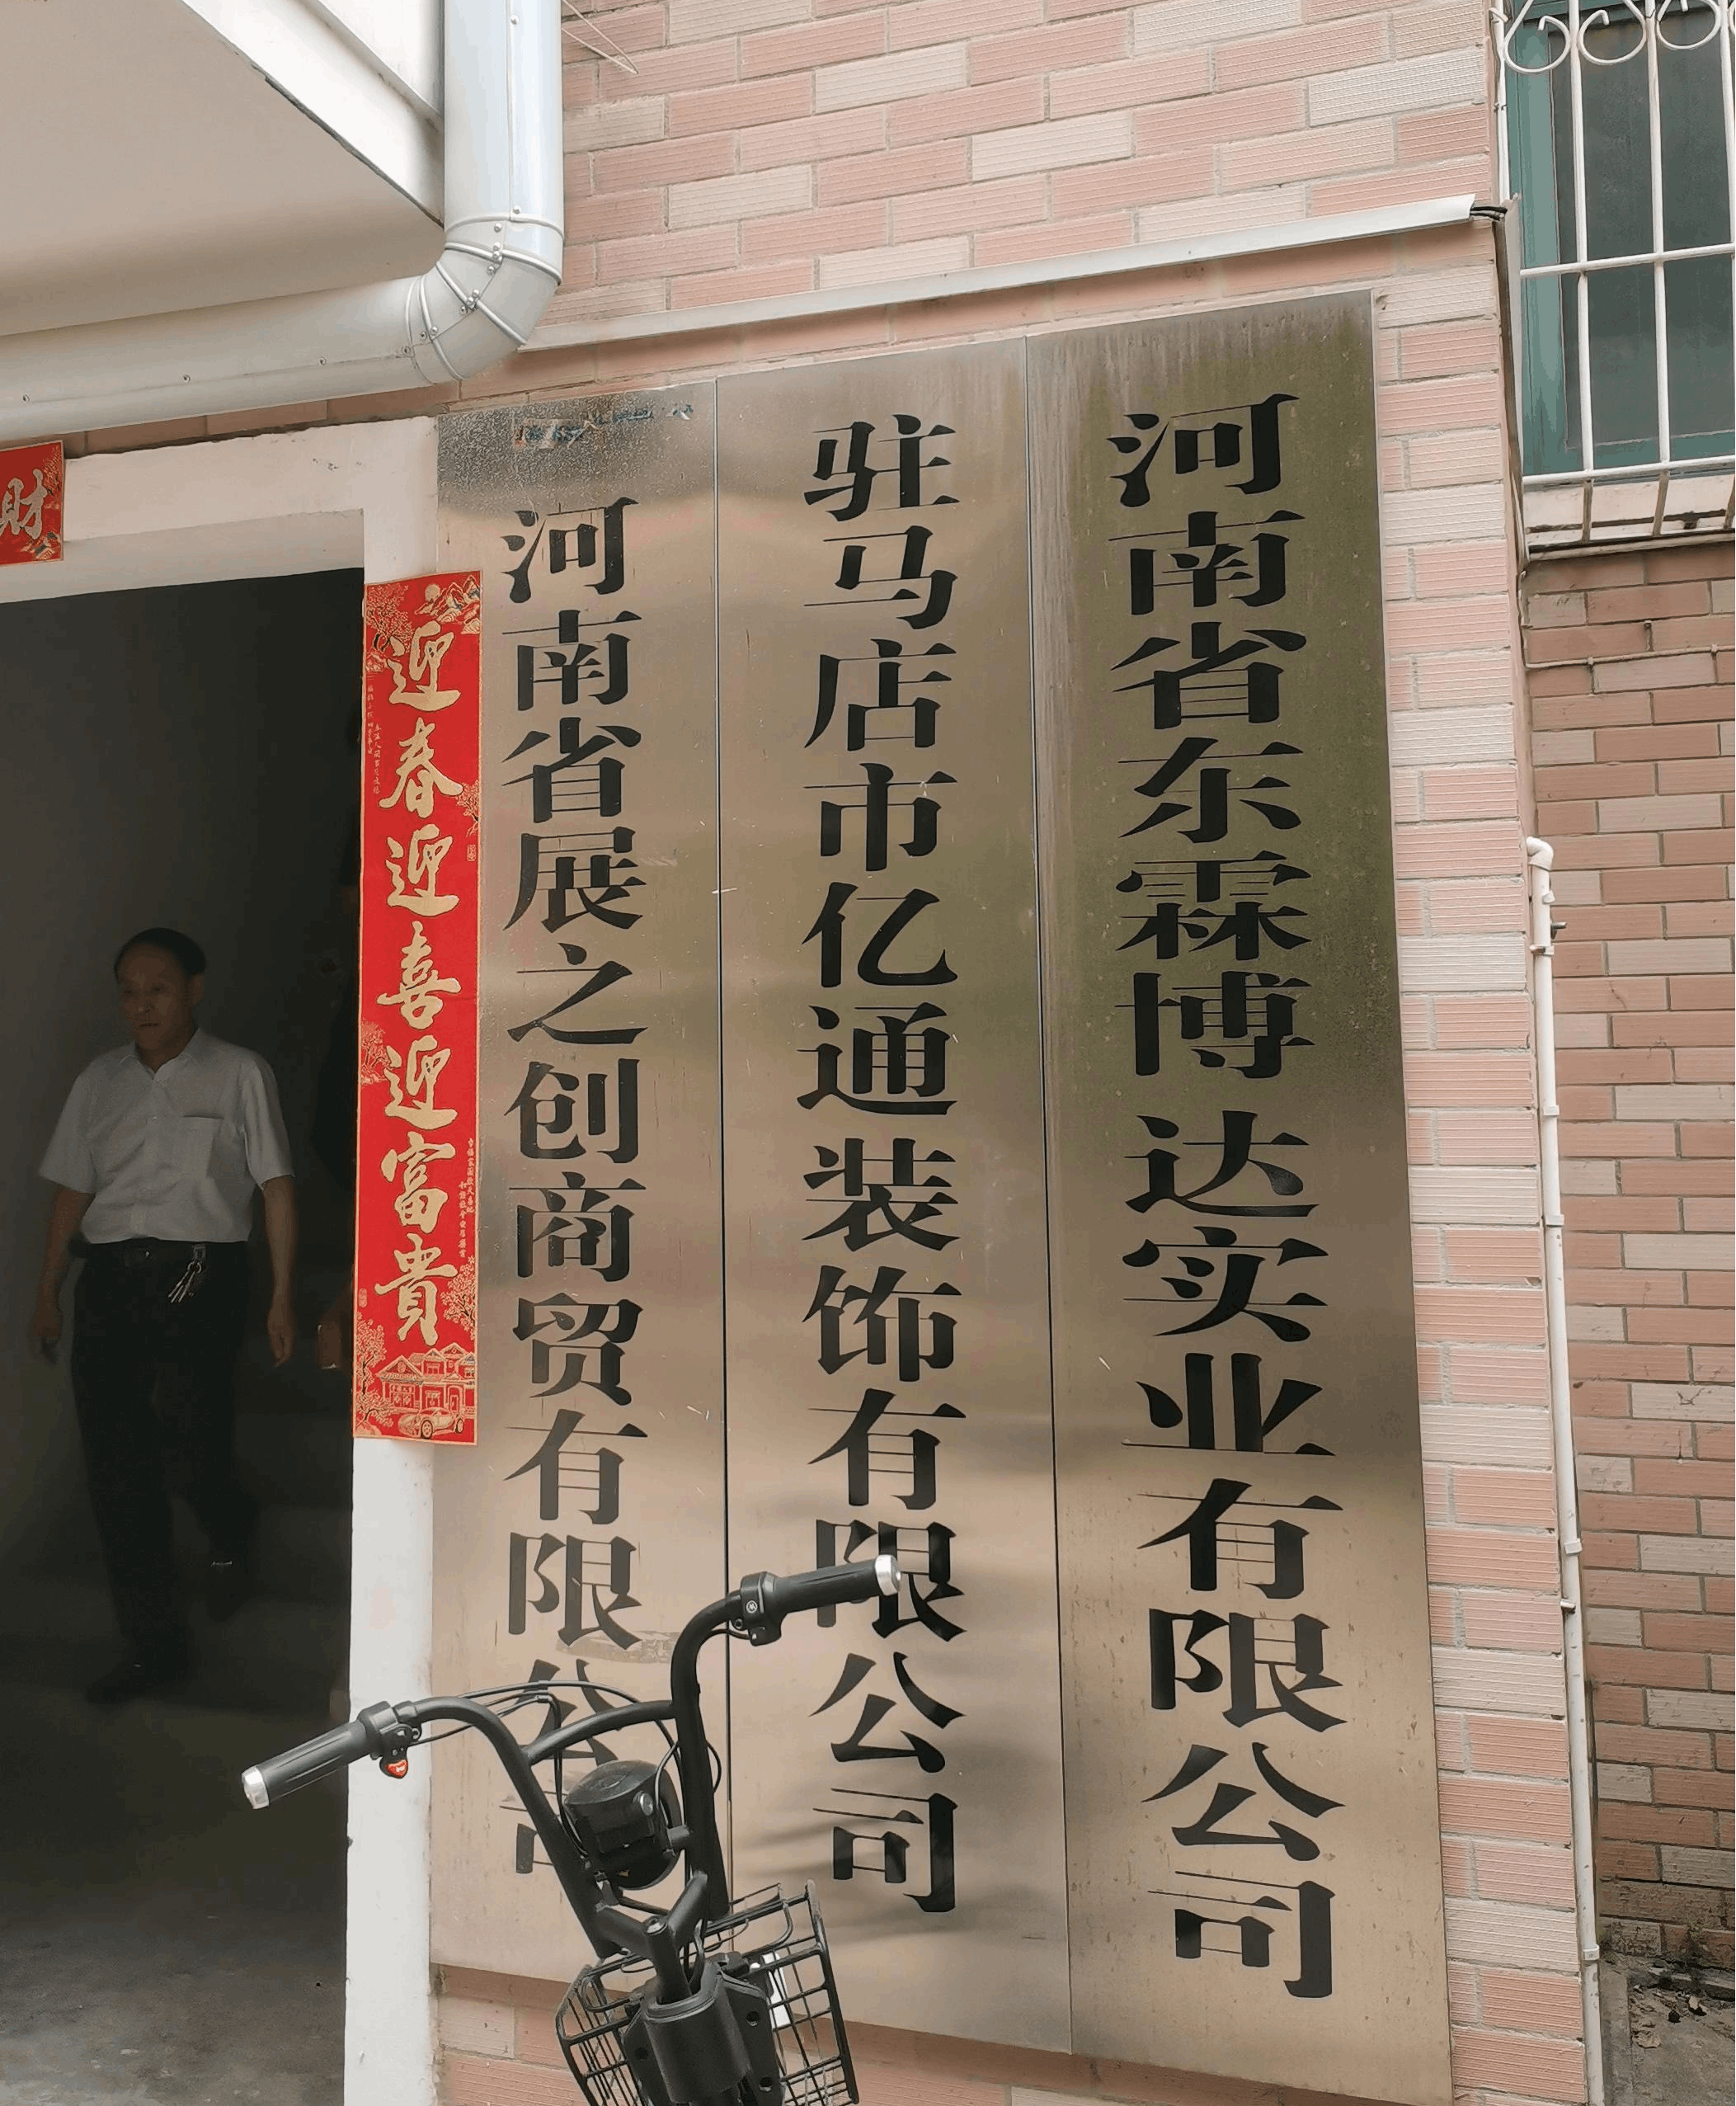 財
迎春迎喜迎富貴
河南省展之创商贸有限公司
驻马店市亿通装饰有限公司
河南省东霖博达实业有限公司